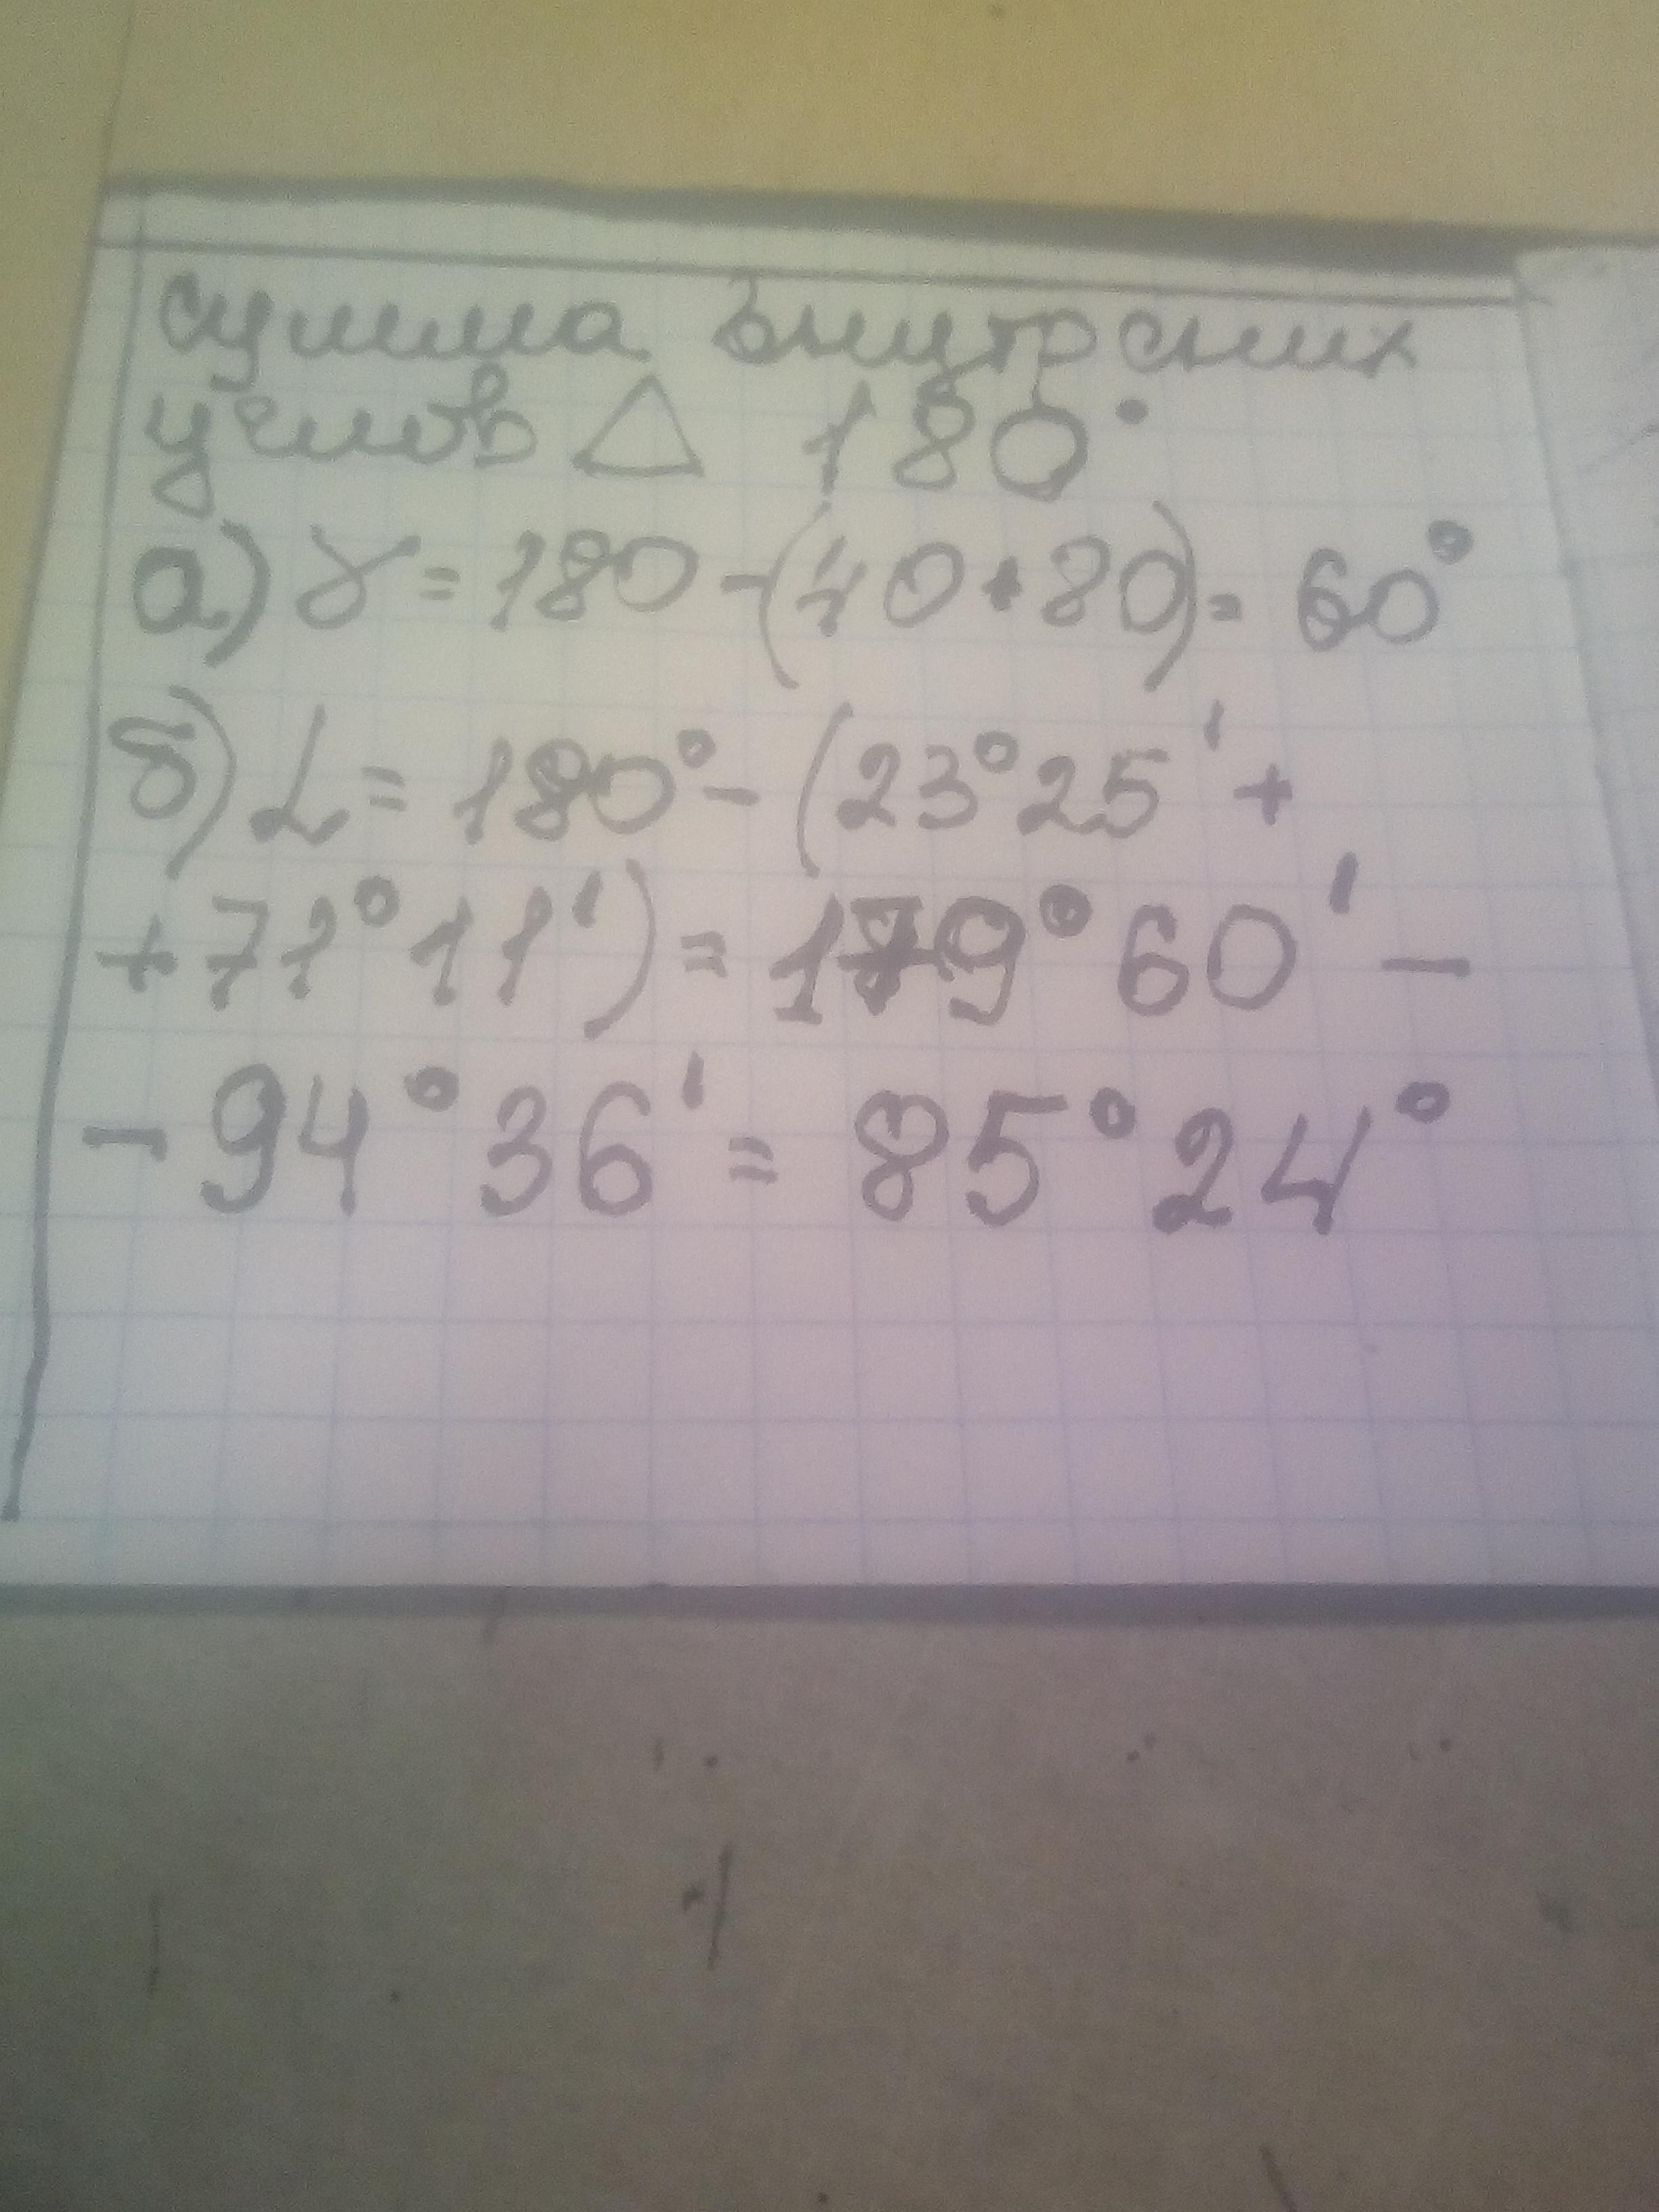 сумма внутрених
углов △ 180°
а) γ = 180 - (40 + 80) = 60°
б) L = 180° - (23°25' +
+ 71°11') = 179°60' -
- 94°36' = 85°24°